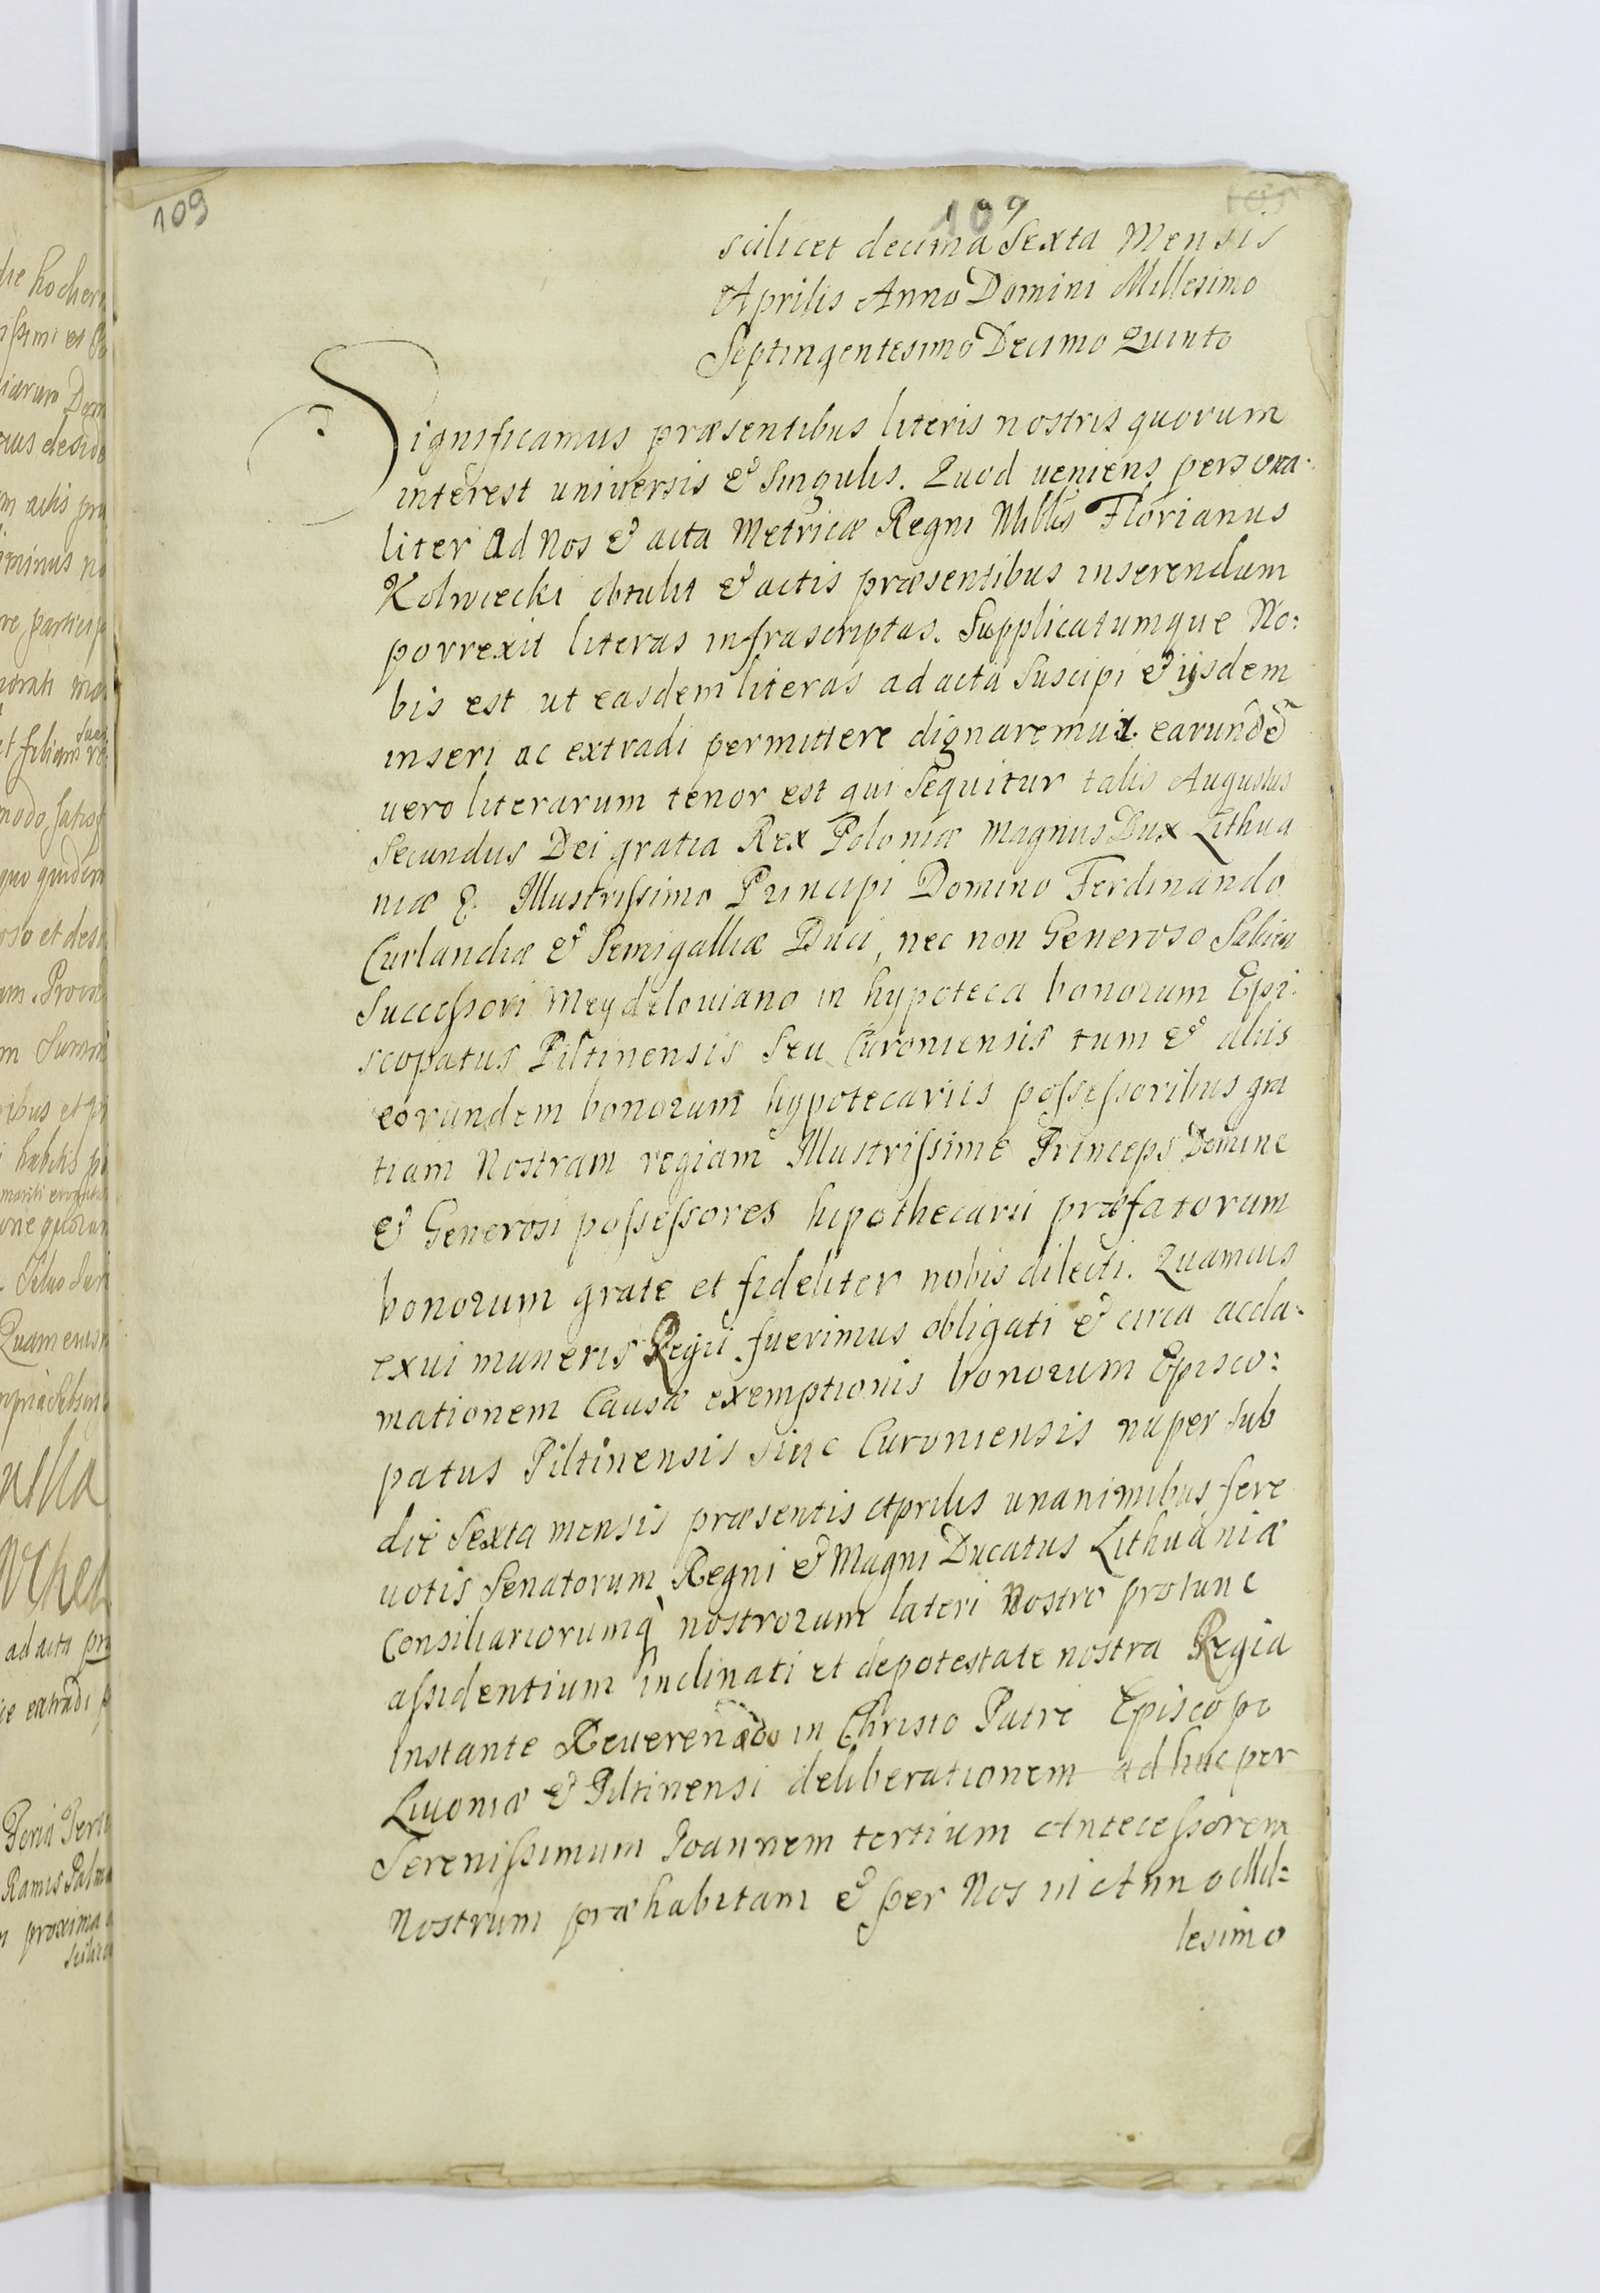 109
109
105
scilicet decima Sexta Mensis
Aprilis Anno Domini Millesimo
Septingentesimo Decimo Quinto
Significamus præsentibus literis nostris quorum
interest universis & Singulis. Quod veniens persona-
liter ad Nos & acta Metricæ Regni Nblis Florianus
Kolwiecki obtulit & actis præsentibus inserendum
porrexit literas infrascriptas. Supplicatumque No:
bis est ut easdem literas ad acta Suscipi & ijsdem
inseri ac extradi permittere dignaremur. earundē
vero literarum tenor est qui Sequitur talis Augustus
Secundus Dei gratia Rex Poloniæ Magnus Dux Lithua
niæ &. Illustrissimo Principi Domino Ferdinando
Curlandiæ & Semigalliæ Duci, nec non Generoso
Successori Meydeloviano in hypoteca bonorum Epi:
scopatus Piltinensis Seu Curoniensis tum & aliis
eorundem bonorum hypotecariis possessoribus gra
tiam Nostram regiam Illustrissime Princeps Domine
& Generosi possessores hipothecarii præfatorum
bonorum grate et fideliter nobis dilecti. Quamvis
ex vi muneris Regii fuerimus obligati & circa accla-
mationem Causæ exemptionis bonorum Episco:
patus Piltinensis sive Curoniensis nuper sub
die Sexta mensis præsentis Aprilis unanimibus fere
votis Senatorum Regni & Magni Ducatus Lithuaniæ
Consiliariorumq̀ nostrorum lateri Nostro protunc
assidentium inclinati et de potestate nostra Regia
instante Reverendo in Christo Patre Episcopo
Livoniæ & Piltinensi deliberationem adhuc per
Serenissimum Joannem tertium Antecessorem
Nostrum præhabitam & per Nos in Anno Mil=
lesimo